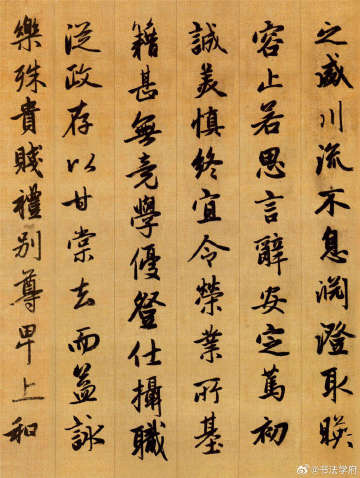 之盛川流不息渊澄取暎
容止若思言辭安定篤初
誠美慎終宜令榮業所基
籍甚無竟學優登仕攝職
從政存以甘棠去而益詠
樂殊貴賤禮别尊卑上和
@书法学府